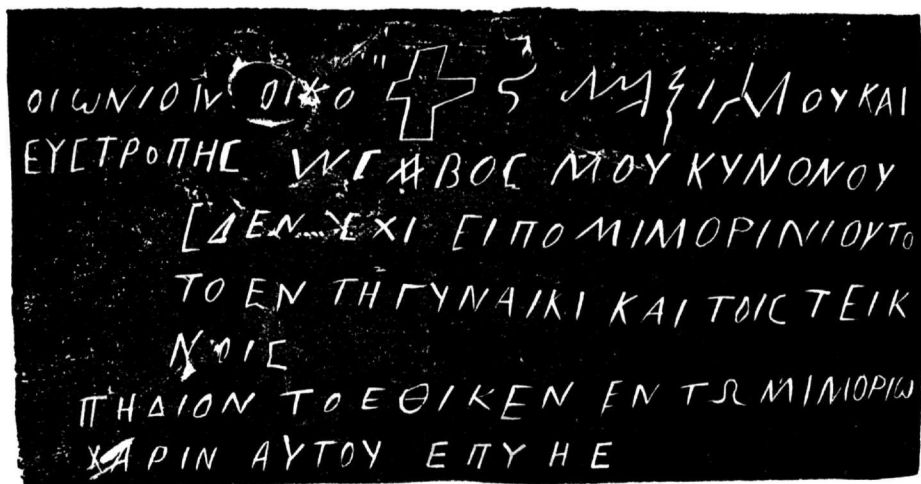 ΟΙΩΝΙΟΙΝ ΟΙΚΟ ΜΑΞΙΜΟΥ ΚΑΙ
ΕΥΣΤΡΟΠΗΣ ΒΟΣ ΜΟΥ ΚΥΝΟΝΟΥ
ΔΕΝ ΕΧΙ ΕΙΠΟ ΜΙΜΟΡΙΝΙΟΥΤΟ
ΤΟ ΕΝ ΤΗ ΓΥΝΑΙΚΙ ΚΑΙ ΤΟΙΣ ΤΕΙΚ
ΝΟΙΣ
ΠΗΔΙΟΝ ΤΟ ΕΘΙΚΕΝ ΕΝ ΤΩ ΜΙΜΟΡΙΩ
ΧΑΡΙΝ ΑΥΤΟΥ ΕΠΥΗΕ